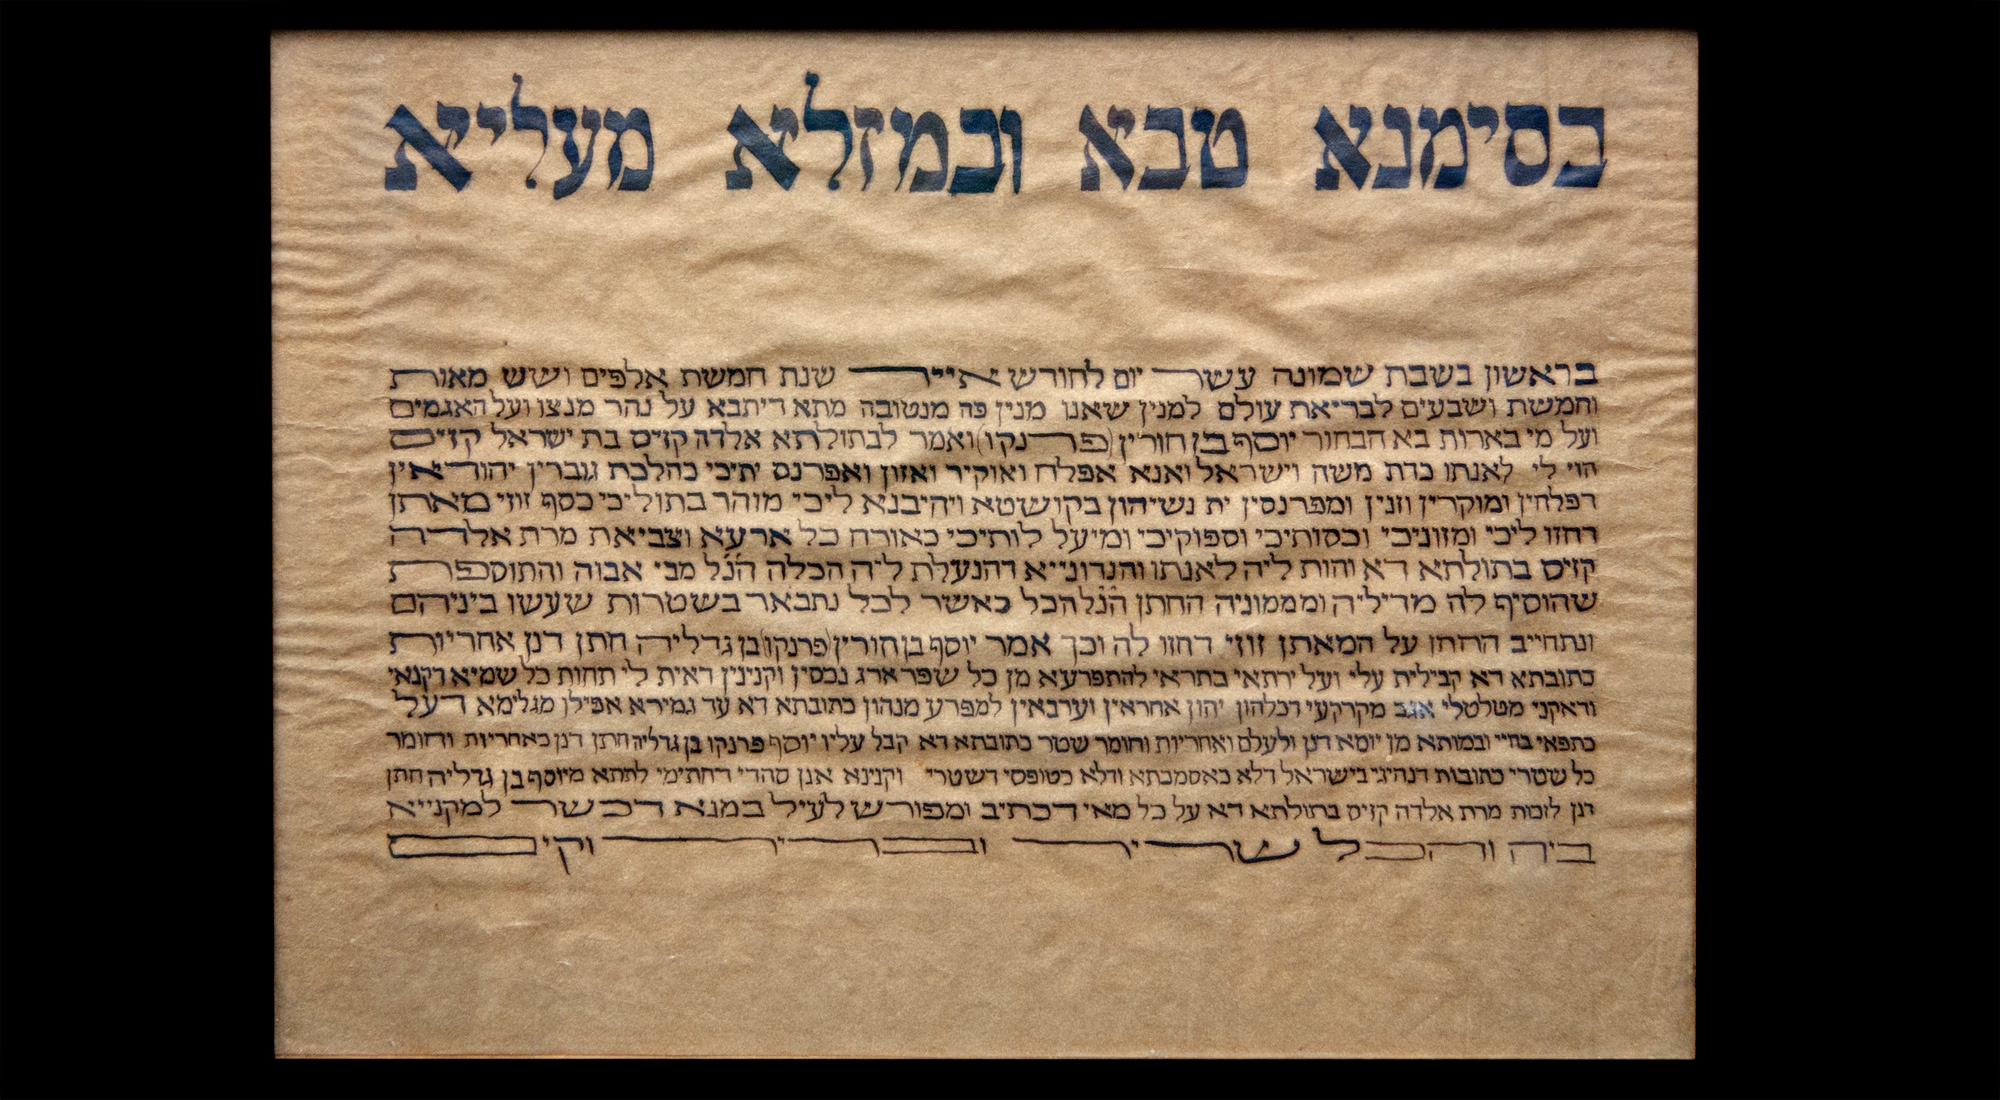 בסימנא טבא ובמזלא מעליא
בראשון בשבת שמונה עשר יום לחודש אייר שנת חמשת אלפים ושש מאות
וחמשת ושבעים לבריאת עולם למנין שאנו מנין פה מנטובה מתא דיתבא על נהר מנצו ועל האגמים
ועל מי בארות בא הבחור יוסף בן חורין (פרנקו) ואמר לבתולתא אלדה קזיס בת ישראל קזיס
הוי לי לאנתו כדת משה וישראל ואנא אפלח ואוקיר ואזון ואפרנס יתיכי כהלכת גוברין יהודאין
דפלחין ומוקרין וזנין ומפרנסין ית נשיהון בקושטא ויהיבנא ליכי מוהר בתוליכי כסף זוזי מאתן
דחזו ליכי ומזוניכי וכסותיכי וספוקיכי ומיעל לותיכי כאורח כל ארעא וצביאת מרת אלדה
קזיס בתולתא דא והות ליה לאנתו והנדונייא דהנעלת ליה הכלה הנ״ל מבי אבוה והתוספת
שהוסיף לה מדיליה ומממוניה החתן הנ״ל הכל כאשר לכל נתבאר בשטרות שעשו ביניהם
ונתחייב החתן על המאתן זוזי דחזו לה וכך אמר יוסף בן חורין (פרנקו) בן גדליה חתן דנן אחריות
כתובתא דא קבילית עלי ועל ירתאי בתראי להתפרעא מן כל שפר ארג נכסין וקנינין דאית לי תחות כל שמיא דקנאי
ודאקני מטלטלי אגב מקרקעי דכלהון יהון אחראין וערבאין למפרע מנהון כתובתא דא עד גמירא אפילו מגלימא דעל
כתפאי בחיי ובמותא מן יומא דנן ולעלם ואחריות וחומר שטר כתובתא דא קבל עליו יוסף פרנקו בן גדליה חתן דנן כאחריות וחומר
כל שטרי כתובות דנהיגי בישראל דלא כאסמכתא ודלא כטופסי דשטרי וקנינא אנן סהדי דחתימי לתתא מיוסף בן גדליה חתן
דנן לזכות מרת אלדה קזיס בתולתא דא על כל מאי דכתיב ומפורש לעיל במנא דכשר למקנייא
ביה והכל שריר ובריר וקים